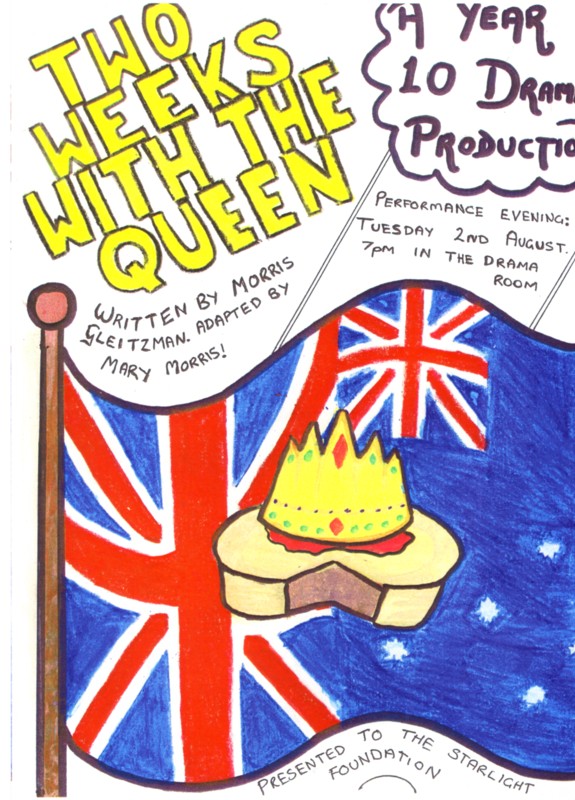 TWO
WEEKS
WITH THE
QUEEN
A YEAR
10 DRAMA
PRODUCTIO
PERFORMANCE EVENING:
TUESDAY 2ND AUGUST.
7PM IN THE DRAMA
ROOM
WRITTEN BY MORRIS
GLEITZMAN. ADAPTED BY
MARY MORRIS!
PRESENTED TO THE STARLIGHT
FOUNDATION